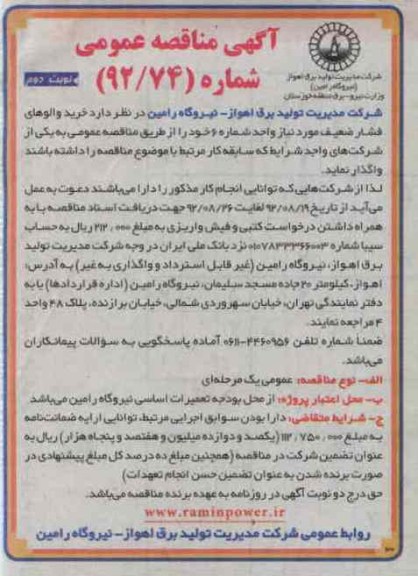 آگهی مناقصه عمومی
شماره (۹۲/۷۴)
نوبت دوم
شرکت مدیریت تولید برق اهواز
(نیروگاه رامین)
وزارت نیرو-برق منطقه خوزستان
شرکت مدیریت تولید برق اهواز- نیروگاه رامین در نظر دارد خرید والوهای
فشار ضعیف مورد نیاز واحد شماره ۶ خود را از طریق مناقصه عمومی به یکی از
شرکت‌های واجد شرایط که سابقه کار مرتبط با موضوع مناقصه را داشته باشند
واگذار نماید.
لذا از شرکت‌هایی که توانایی انجام کار مذکور را دارا می‌باشند دعوت به عمل
می‌آید از تاریخ ۹۲/۰۸/۱۹ لغایت ۹۲/۰۸/۲۶ جهت دریافت اسناد مناقصه با به
همراه داشتن درخواست کتبی و فیش واریزی به مبلغ ۲۱۲,۰۰۰ ریال به حساب
سیبا شماره ۰۱۰۷۸۳۳۳۶۶۰۰۳ نزد بانک ملی ایران در وجه شرکت مدیریت تولید
برق اهواز، نیروگاه رامین (غیر قابل استرداد و واگذاری به غیر) به آدرس:
اهواز، کیلومتر ۲۰ جاده مسجد سلیمان، نیروگاه رامین (اداره قراردادها) یا به
دفتر نمایندگی تهران، خیابان سهروردی شمالی، خیابان برازنده، پلاک ۴۸ واحد
۴ مراجعه نمایند.
ضمنا شماره تلفن ۴۴۶۰۹۵۶-۰۶۱۱ آماده پاسخگویی به سؤالات پیمانکاران
می‌باشد.
الف- نوع مناقصه: عمومی یک مرحله‌ای
ب- محل اعتبار پروژه: از محل بودجه تعمیرات اساسی نیروگاه رامین می‌باشد
ج- شرایط متقاضی: دارا بودن سوابق اجرایی مرتبط، توانایی ارایه ضمانت‌نامه
به مبلغ ۱۱۲,۷۵۰,۰۰۰ (یکصد و دوازده میلیون و هفتصد و پنجاه هزار) ریال به
عنوان تضمین شرکت در مناقصه (همچنین مبلغ ده درصد کل مبلغ پیشنهادی در
صورت برنده شدن به عنوان تضمین حسن انجام تعهدات)
حق درج دو نوبت آگهی در روزنامه به عهده برنده مناقصه می‌باشد.
www.raminpower.ir
روابط عمومی شرکت مدیریت تولید برق اهواز- نیروگاه رامین